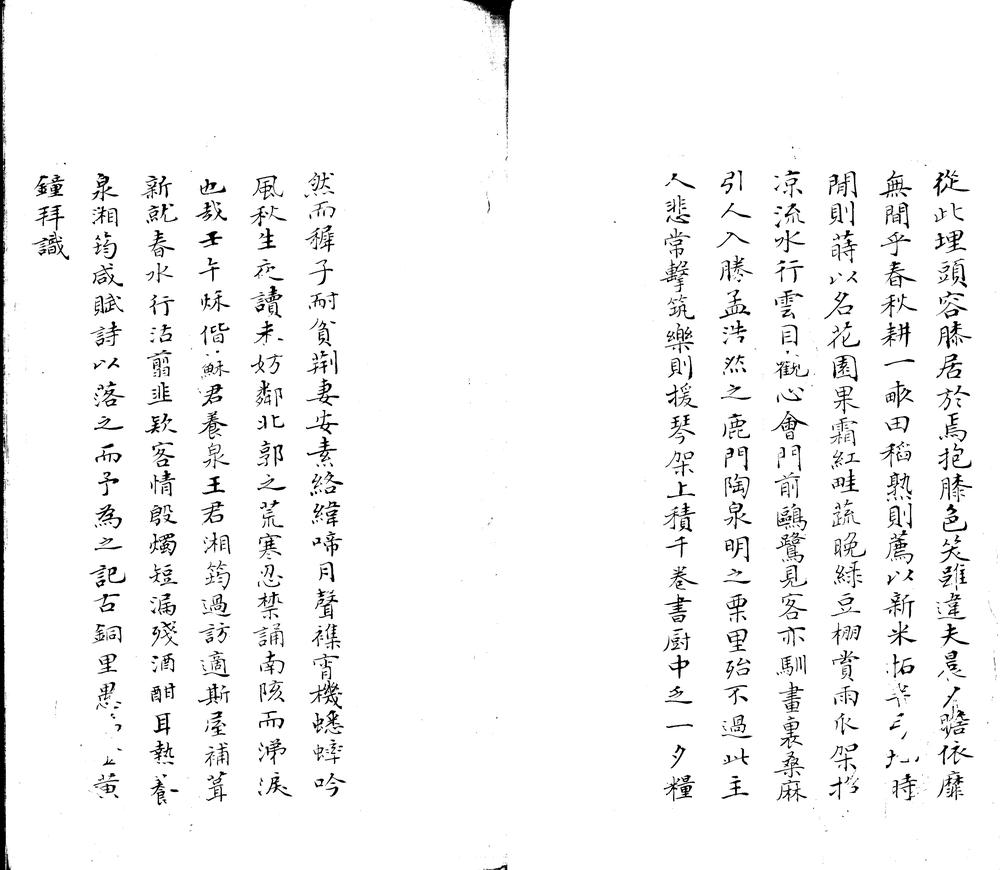 從此埋頭容膝居於焉抱膝色笑雖違夫晨夕瞻依靡
無間乎春秋耕一畞田稻熟則薦以新米拓半弓九時
閒則蒔以名花園果霜紅畦蔬晚綠豆棚賞雨瓜架招
凉流水行雲目觀心會門前鷗鷺見客亦馴畫裏桑麻
引人入勝孟浩然之鹿門陶泉明之栗里殆不過此主
人悲常擊筑樂則援琴架上積千卷書厨中乏一夕糧
然而穉子耐貧荆妻安素絡緯啼月聲襍宵機蟋蟀吟
風秋生夜讀未妨鄰北郭之荒寒忍禁誦南陔而涕淚
也哉壬午秌偕蘇君養泉王君湘筠過訪適斯屋補葺
新就春水行沽翦韭欵客情殷燭短漏殘酒酣耳熱養
泉湘筠咸賦詩以落之而予為之記古銅里愚黃
鐘拜識